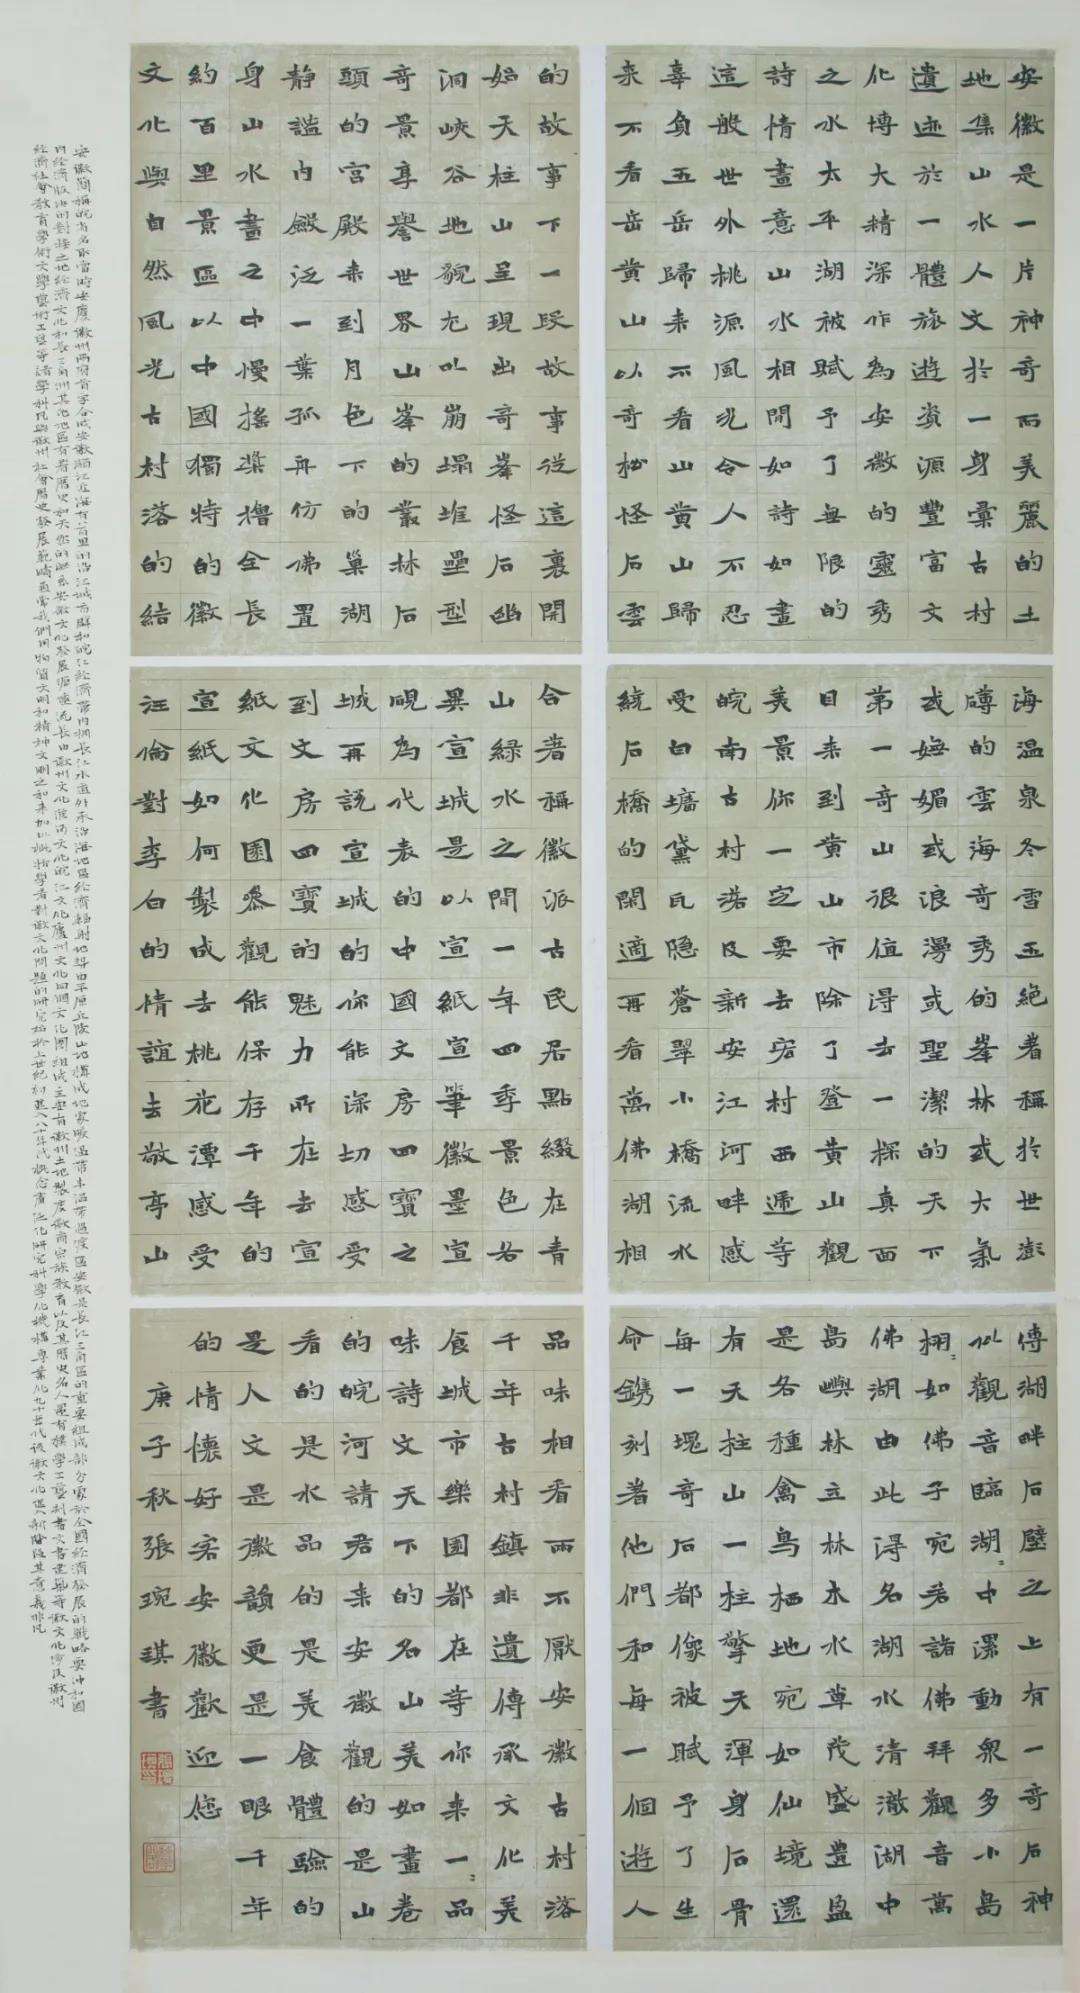 安徽是一片神奇而美麗的土
地集山水人文於一身彙古村
遺迹於一體旅遊資源豐富文
化博大精深作為安徽的靈秀
之水太平湖被賦予了無限的
詩情畫意山水相間如詩如畫
這般世外桃源風光令人不忍
辜負五岳歸来不看山黄山歸
来不看岳黄山以奇松怪石雲
海温泉冬雪五絕著稱於世澎
礴的雲海奇秀的峯林或大氣
或嫵媚或浪漫或聖潔的天下
第一奇山很值得去一探真面
目来到黄山市除了登黄山觀
美景你一定要去宏村西遞等
皖南古村落及新安江河畔感
受白墻黛瓦隐蒼翠小橋流水
繞石橋的閑適再看萬佛湖相
傳湖畔石壁之上有一奇石神
似觀音臨湖〻中漂動眾多小島
栩〻如佛子宛若諸佛拜觀音萬
佛湖由此得名湖水清澈湖中
島嶼林立林木水草茂盛豐盈
是各種禽鳥栖地宛如仙境還
有天柱山一柱擎天渾身石骨
每一塊奇石都像被賦予了生
命鐫刻著他們和每一個遊人
的故事下一段故事從這裏開
始天柱山呈現出奇峯怪石幽
洞峽谷地貌尤以崩塌堆壘型
奇景享譽世界山峯的叢林石
頭的宮殿来到月色下的巢湖
静謐内殿泛一葉孤舟仿佛置
身山水畫之中慢搖槳櫓全長
約百里景區以中國獨特的徽
文化與自然風光古村落的結
合著稱徽派古民居點綴在青
山綠水之間一年四季景色各
異宣城是以宣紙宣筆徽墨宣
硯為代表的中國文房四寶之
城再説宣城的你能深切感受
到文房四寶的魅力所在去宣
紙文化園參觀能保存千年的
宣紙如何製成去桃花潭感受
汪倫對李白的情誼去敬亭山
品味相看兩不厭安徽古村落
千年古村鎮非遺傳承文化美
食城市樂園都在等你来一〻品
味詩文天下的名山美如畫卷
的皖河請君来安徽觀的是山
看的是水品的是美食體驗的
是人文是徽韻更是一眼千年
的情懷好客安徽歡迎您
庚子秋張琬琪書